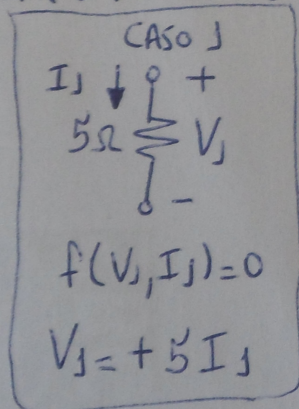 CASO 1
I1 +
5Ω V1
-
f(V1, I1)=0
V1=+5I1